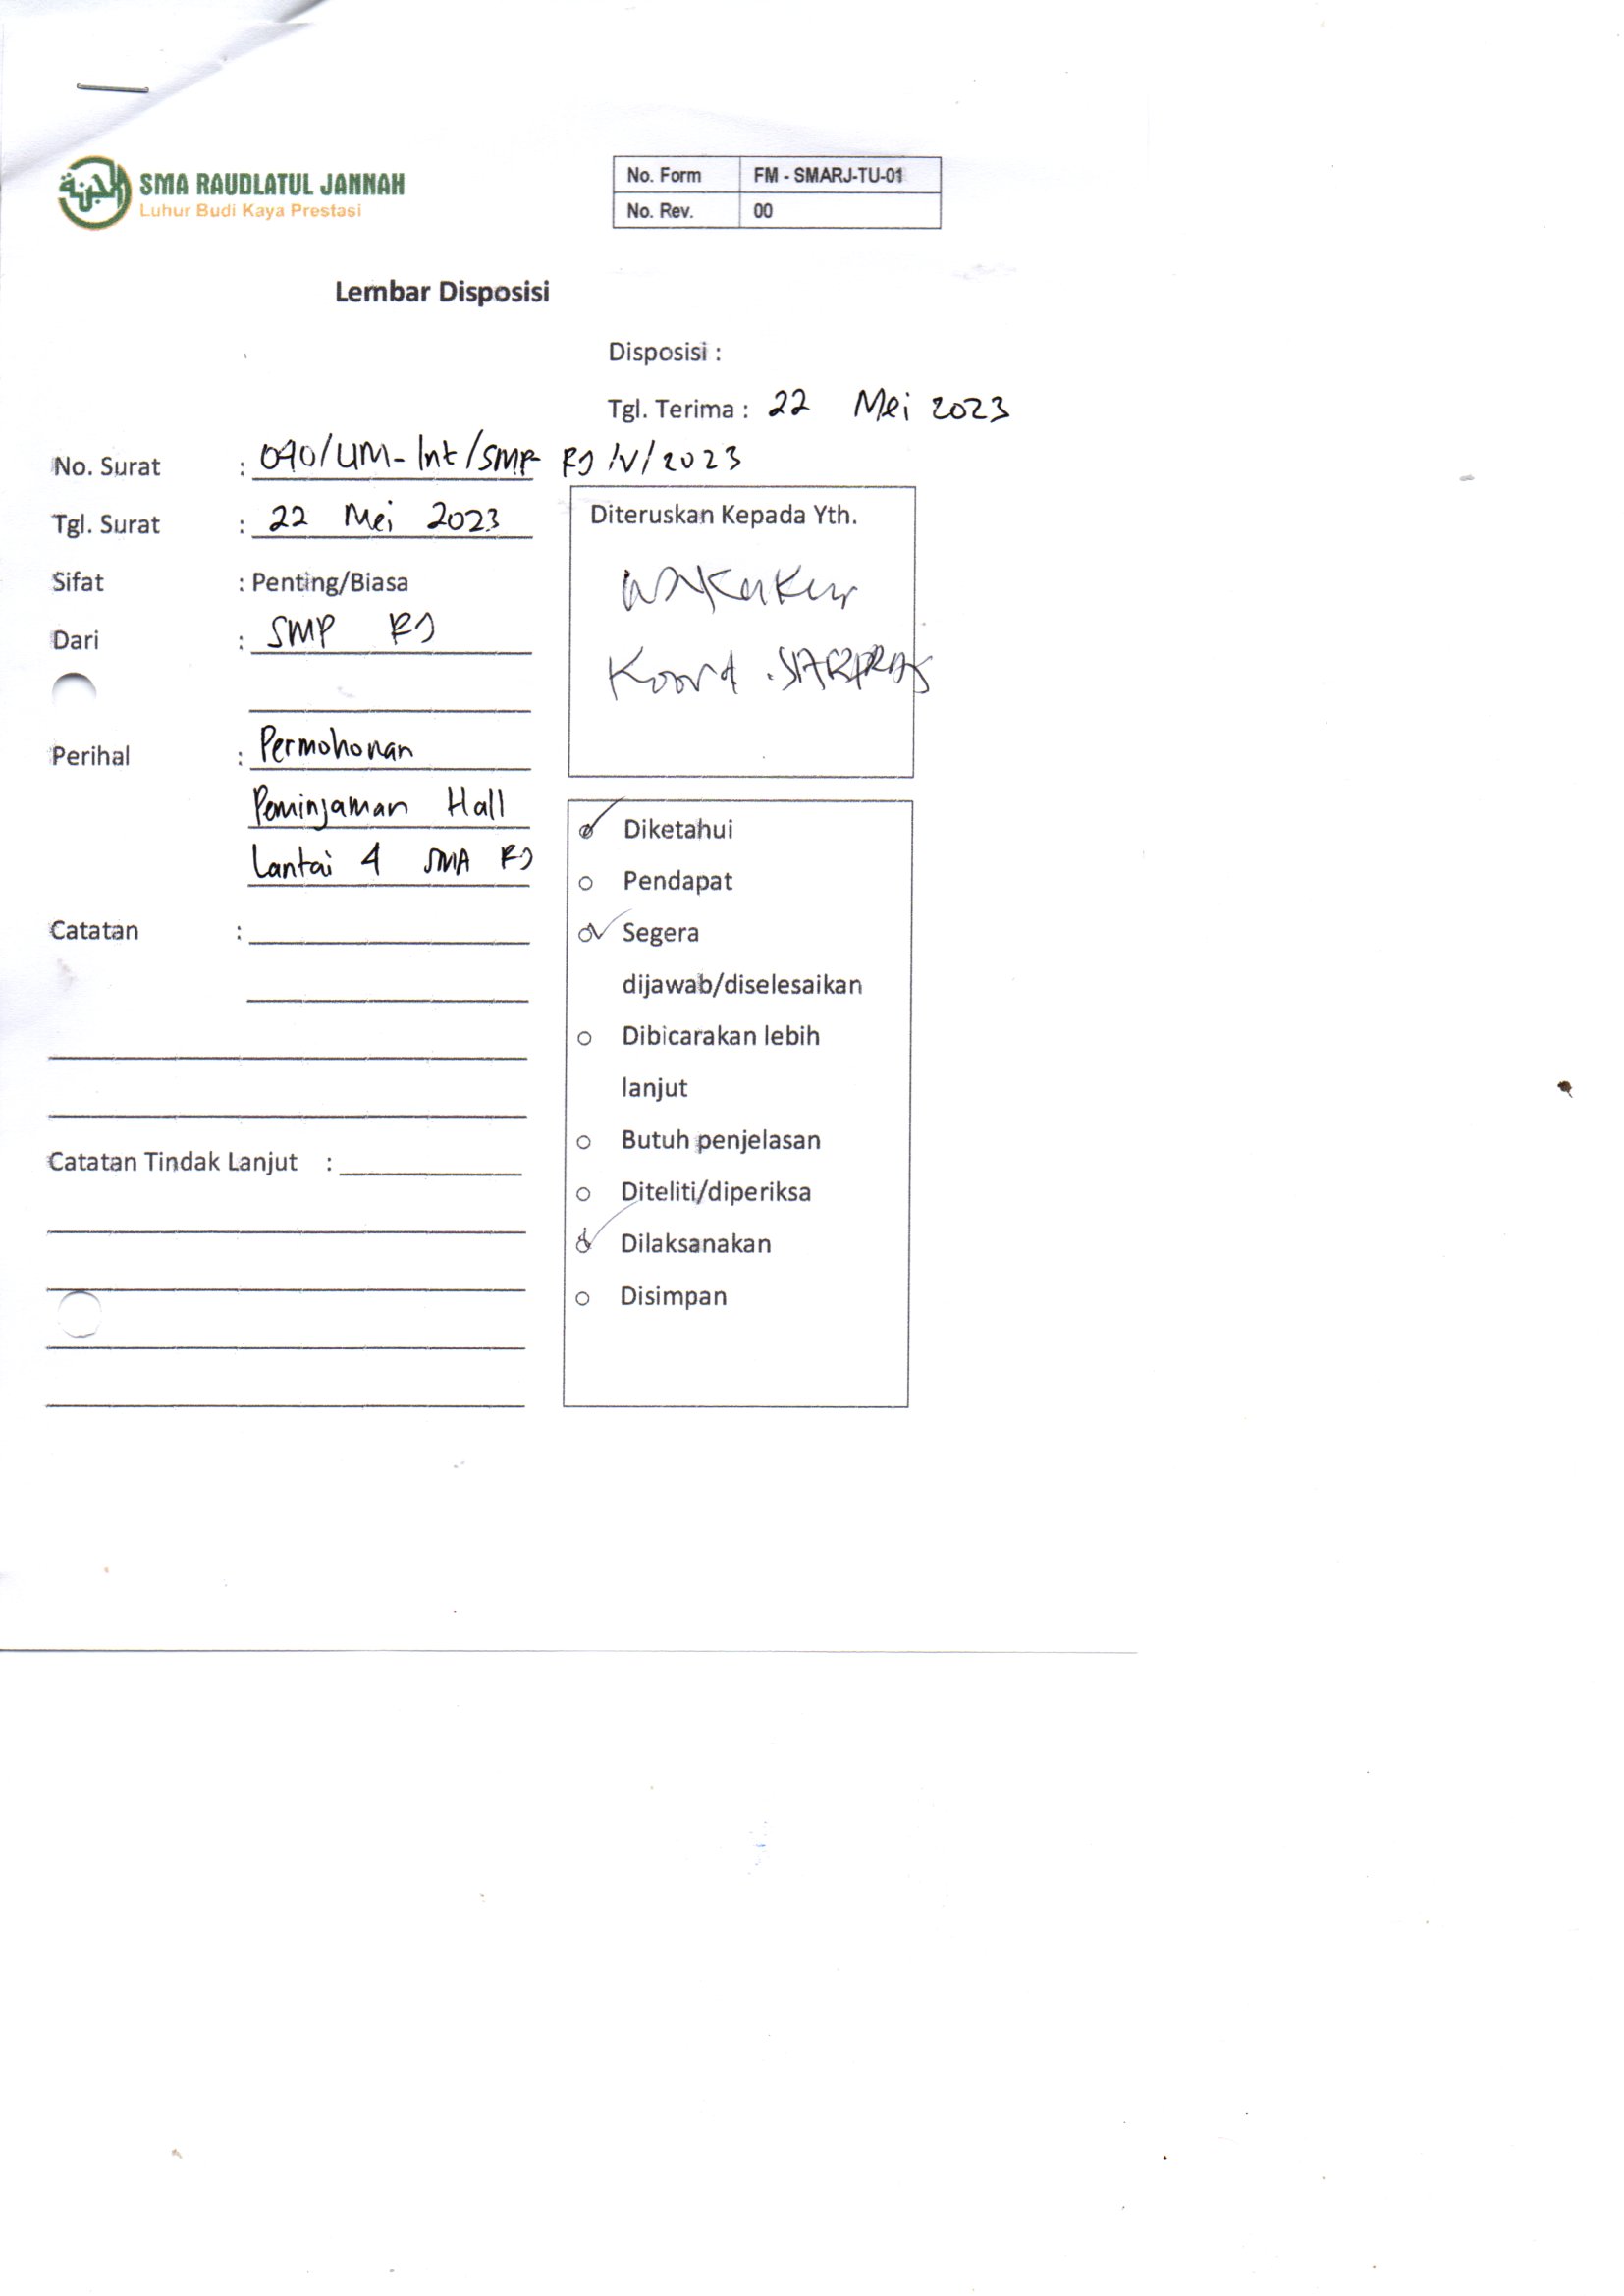 SMA RAUDLATUL JANNAH
Luhur Budi Kaya Prestasi
No. Form FM - SMARJ-TU-01
No. Rev. 00
Lembar Disposisi
Disposisi :
Tgl. Terima : 22 Mei 2023
No. Surat : 090/UM-Int/SMP-RJ/V/2023
Tgl. Surat : 22 Mei 2023
Sifat : Penting/Biasa
Dari : SMP RJ
Perihal : Permohonan
Peminjaman Hall
Lantai 4 SMA RJ
Catatan :
Catatan Tindak Lanjut :
Diteruskan Kepada Yth.
Wakakur
Koord. SARPRAS
Diketahui
Pendapat
Segera
dijawab/diselesaikan
Dibicarakan lebih
lanjut
Butuh penjelasan
Diteliti/diperiksa
Dilaksanakan
Disimpan